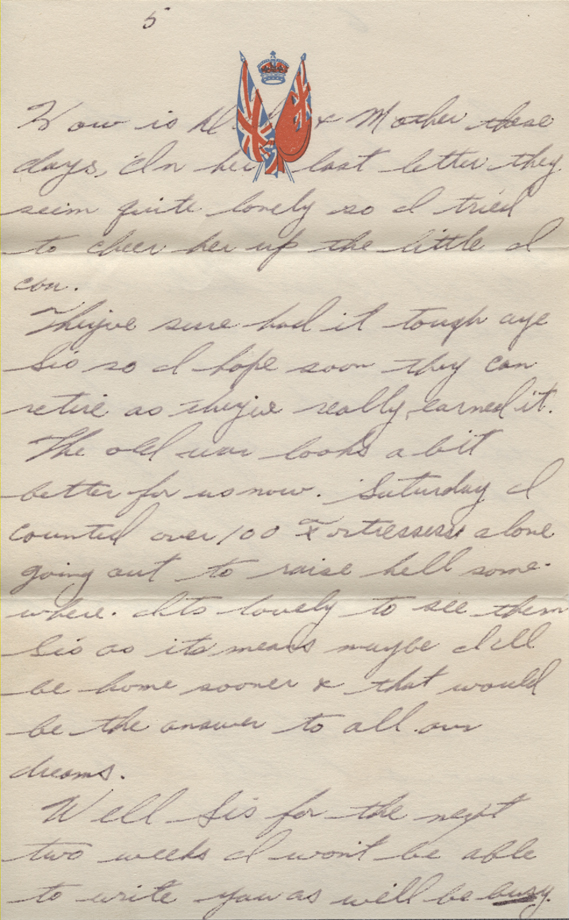 5
How is & Mother these
days, In her last letter they
seem quite lonely so I tried
to cheer her up the little I
can.
They've sure had it tough aye
Sis so I hope soon they can
retire as they've really earned it.
The old war looks a bit
better for us now. Saturday I
counted over 100 Fortresses alone
going out to raise hell some-
where. Its lovely to see them
Sis as its means maybe I'll
be home sooner & that would
be the answer to all our
dreams.
Well Sis for the next
two weeks I won't be able
to write you as will be busy.